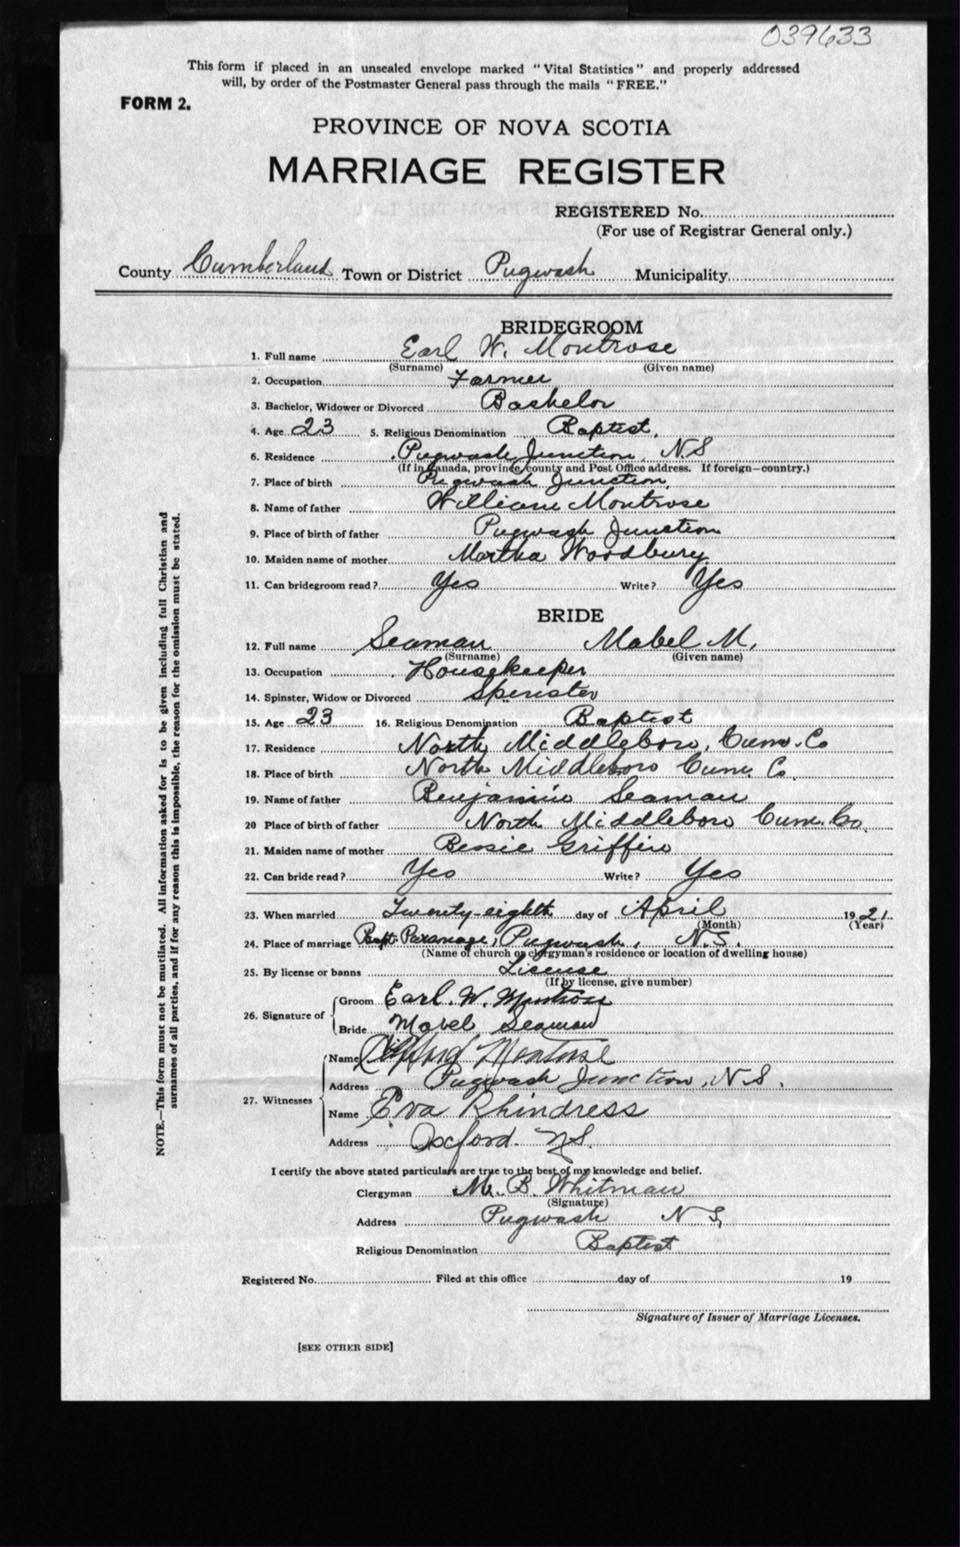 039633
This form if placed in an unsealed envelope marked "Vital Statistics" and properly addressed
will, by order of the Postmaster General pass through the mails "FREE."
FORM 2.
PROVINCE OF NOVA SCOTIA
MARRIAGE REGISTER
REGISTERED No.
(For use of Registrar General only.)
County Cumberland Town or District Pugwash Municipality
BRIDEGROOM
1. Full name Earl W. Montrose
(Surname) (Given name)
2. Occupation Farmer
3. Bachelor, Widower or Divorced Bachelor
4. Age 23 5. Religious Denomination Baptist,
6. Residence Pugwash Junction, NS
(If in Canada, province, county and Post Office address. If foreign—country.)
7. Place of birth Pugwash Junction,
8. Name of father William Montrose
9. Place of birth of father Pugwash Junction
10. Maiden name of mother Martha Woodbury
11. Can bridegroom read? Yes Write? Yes
BRIDE
12. Full name Seaman Mabel M.
(Surname) (Given name)
13. Occupation Housekeeper
14. Spinster, Widow or Divorced Spinster
15. Age 23 16. Religious Denomination Baptist
17. Residence North Middleboro, Cum. Co
18. Place of birth North Middleboro Cum. Co.
19. Name of father Benjamin Seaman
20 Place of birth of father North Middleboro Cum. Co.
21. Maiden name of mother Bessie Griffin
22. Can bride read? Yes Write? Yes
23. When married Twenty-eighth day of April 1921
(Month) (Year)
24. Place of marriage Bapt. Parsonage, Pugwash, N.S.
(Name of church or clergyman's residence or location of dwelling house)
25. By license or banns License
(If by license, give number)
26. Signature of Groom Earl. W. Montrose
Bride Mabel Seaman
27. Witnesses Name Clifford Montrose
Address Pugwash Junction, N.S.
Name Eva Rhindress
Address Oxford. N.S.
I certify the above stated particulars are true to the best of my knowledge and belief.
Clergyman M. B. Whitman
(Signature)
Address Pugwash N S,
Religious Denomination Baptist
Registered No. Filed at this office day of 19
Signature of Issuer of Marriage Licenses.
[SEE OTHER SIDE]
NOTE.—This form must not be mutilated. All information asked for is to be given including full Christian and
surnames of all parties, and if for any reason this is impossible, the reason for the omission must be stated.